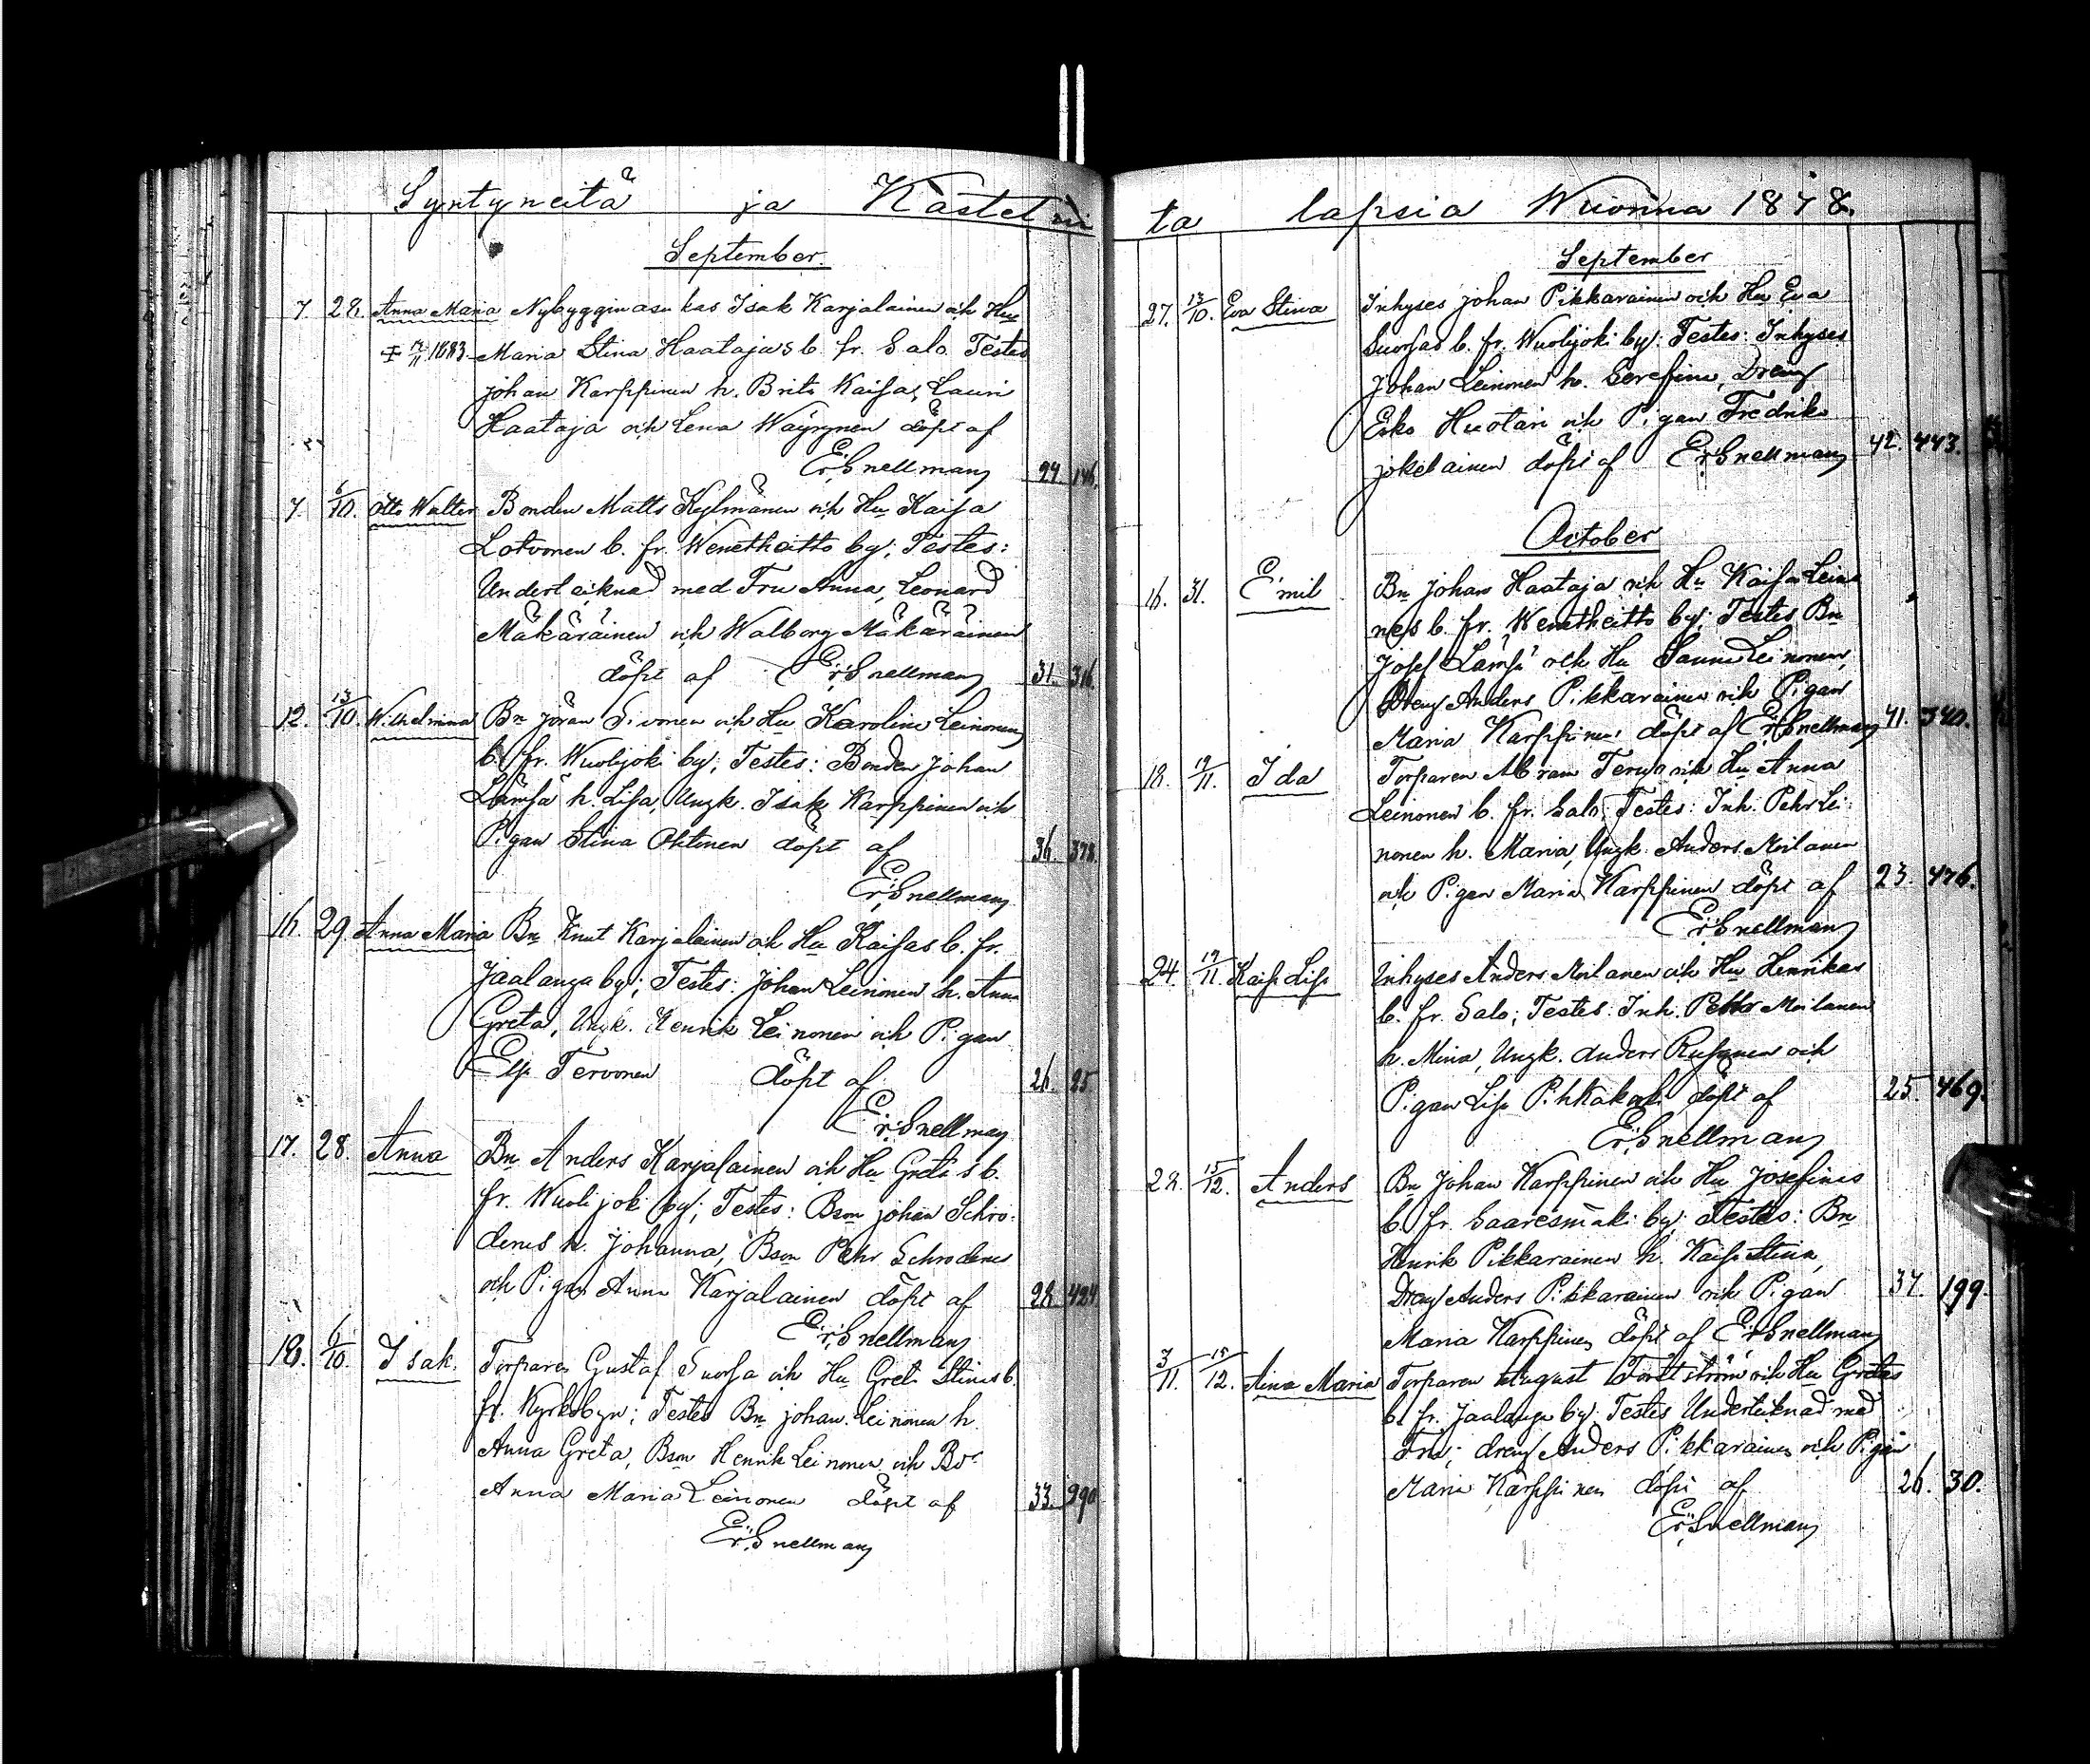 Syntyneitä ja Kastettui
September.
7. 28. Anna Maria Nybygginasukas Isak Karjalainen och Hu
1883. Maria Stina Haatajas b. fr. Salo Testes
Johan Karppinen h. Brita Kaisa, Lauri
Haataja och Lena Wäyrynen döpt af
Er. Snellman 24 146.
7. 6/10. Otto Walter Bonden Matts Kylmänen och Hu Kaisa
Lotvonen b. fr. Wenetheitto by; Testes:
Undertecknad med Fru Anna, Leonard
Mäkäräinen och Walborg Mäkäräinen
döpt af Er. Snellman 31. 316
12. 13/10. Wilhelmina Bn Jöran Sivonen och Hu Karolina Leinonen
b. fr. Wuolijoki by; Testes: Bonden Johan
Lämsä h. Lisa, Ungk. Isak Karppinen och
Pigan Stina Ohtinen döpt af 36. 378.
Er. Snellman
16. 29. Anna Maria Bn Knut Karjalainen och Hu Kaisas b. fr.
Jaalanga by; Testes: Johan Leinonen h. Anna
Greta, Ungk. Henrik Leinonen och Pigan
Tervonen döpt af 26. 25
Er. Snellman
17. 28. Anna Bn Anders Karjalainen och Hu Gretas b.
fr. Wuolijoki by; Testes: Bson Johan Schro-
derus h. Johanna, Bson Pehr Schroderus
och Pigan Anna Karjalainen döpt af 28. 424
Er. Snellman
18. 6/10. Isak. Torparen Gustaf Suorsa och Hu Greta Stinas b.
fr. Kyrkobyn; Testes Bn Johan Leinonen h.
Anna Greta, Bson Henrik Leinonen och Bdr
Anna Maria Leinonen döpt af 33. 990
Er. Snellman
ta lapsia Wuonna 1878.
September
27. 13/10. Eva Stina Inhyses Johan Pikkarainen och Hu Eva
Suorsas b. fr. Wuolijoki by: Testes: Inhyses
Johan Leinonen h. Serefina, Dreng
Esko Huotari och Pigan Fredrika
Jokelainen döpt af Er Snellman 42. 443.
October
16. 31. Emil Bn Johan Haataja och Hu Kaisa Leino
nens b. fr. Wenetheitto by; Testes Bn
Josef Lämsä och Hu Sanna Leinonen,
Dreng Anders Pikkarainen och Pigan
Maria Karppinen döpt af Er. Snellman 41. 340.
18. 19/11. Ida Torparen Abram Tervo och Hu Anna
Leinonen b. fr. Salo; Testes: Inh. Pehr Lei-
nonen h. Maria, Ungk. Anders Moilanen
och Pigan Maria Karppinen döpt af 23. 476.
Er. Snellman
24. 19/11. Kaisa Lisa Inhyses Anders Moilanen och Hu Henrikas
b. fr. Salo; Testes: Inh. Moilanen
h. Mina, Ungk. Anders och
Pigan Lisa döpt af 25. 469.
Er. Snellman
28. 15/12. Anders Bn Johan Karppinen och Hu Josefinas
b. fr. Saaresmäki by; Testes: Bn
Henrik Pikkarainen h. Kaisa Stina,
Dreng Anders Pikkarainen och Pigan 37. 199.
Maria Karppinen döpt af Er Snellman
3/11. 15/12. Aina Maria Torparen August och Hu Gretas
b. fr. Jaalanga by. Testes Undertecknad med
Fru; dreng Anders Pikkarainen och Pigan
Maria Karppinen döpt af 26. 30.
Er. Snellman